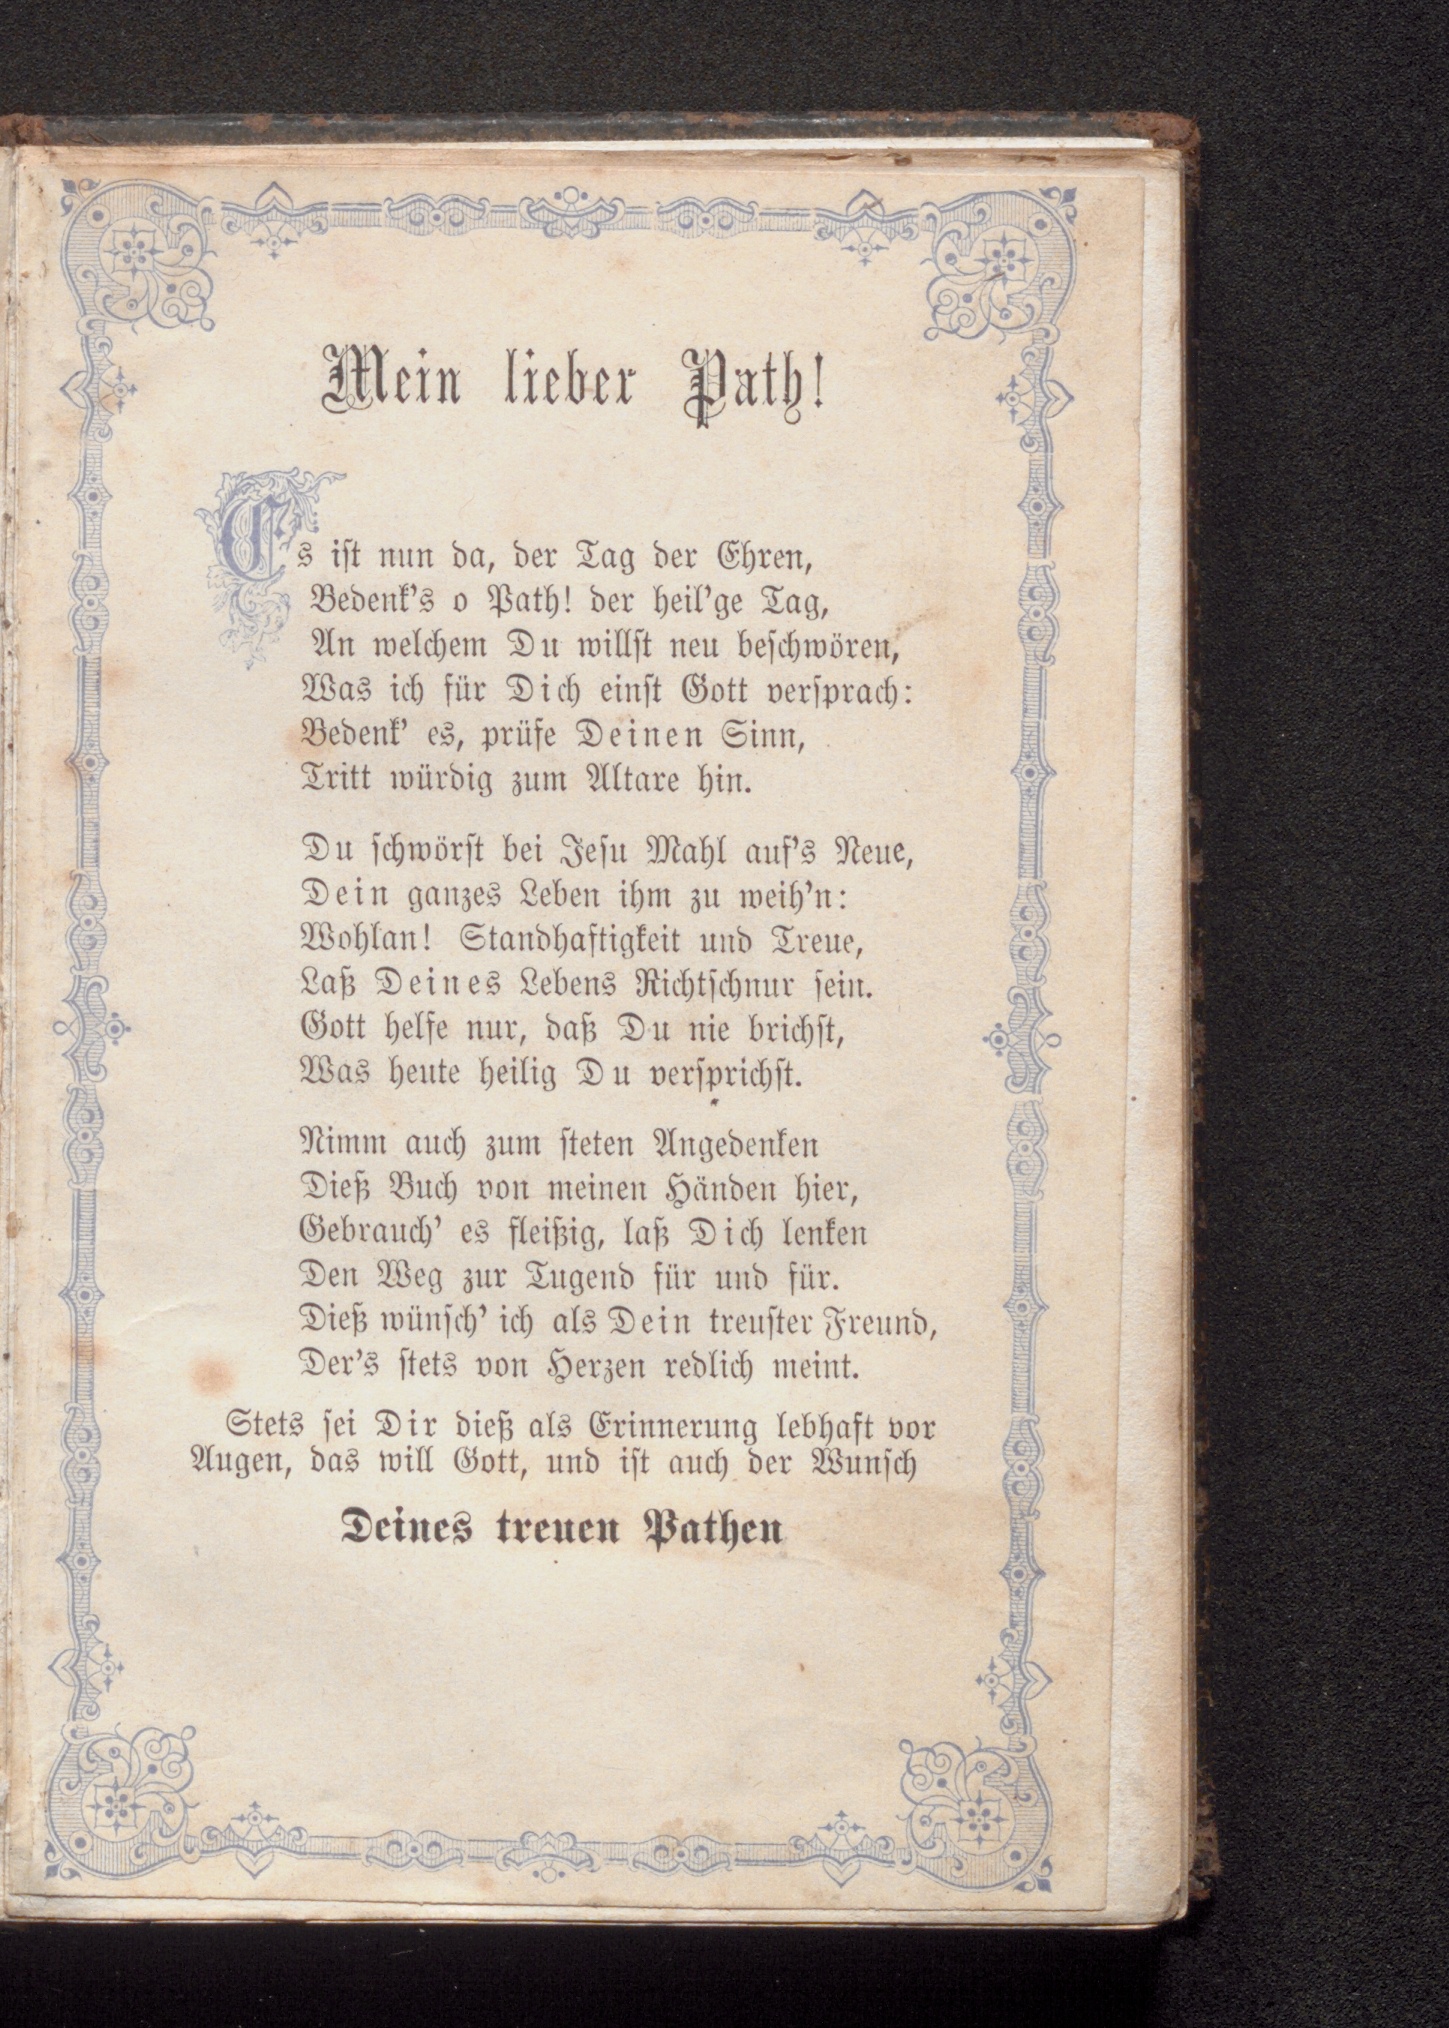 Mein lieber Path!
Es ist nun da, der Tag der Ehren,
Bedenk's o Path! der heil'ge Tag,
An welchem Du willst neu beschwören,
Was ich für Dich einst Gott versprach:
Bedenk' es, prüfe Deinen Sinn,
Tritt würdig zum Altare hin.
Du schwörst bei Jesu Mahl auf's Neue,
Dein ganzes Leben ihm zu weih'n:
Wohlan! Standhaftigkeit und Treue,
Laß Deines Lebens Richtschnur sein.
Gott helfe nur, daß Du nie brichst,
Was heute heilig Du versprichst.
Nimm auch zum steten Angedenken
Dieß Buch von meinen Händen hier,
Gebrauch' es fleißig, laß Dich lenken
Den Weg zur Tugend für und für.
Dieß wünsch' ich als Dein treuster Freund,
Der's stets von Herzen redlich meint.
Stets sei Dir dieß als Erinnerung lebhaft vor
Augen, das will Gott, und ist auch der Wunsch
Deines treuen Pathen